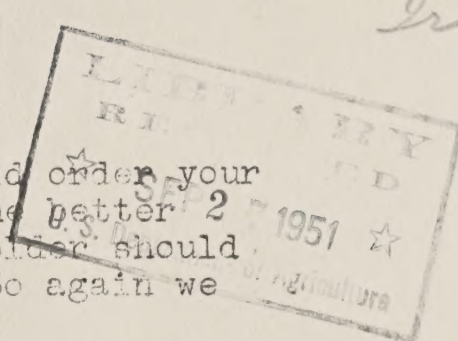 LIBRARY
RECEIVED
☆ SEP 1951 ☆
U. S. Department of Agriculture
order your
better 2
should
so again we